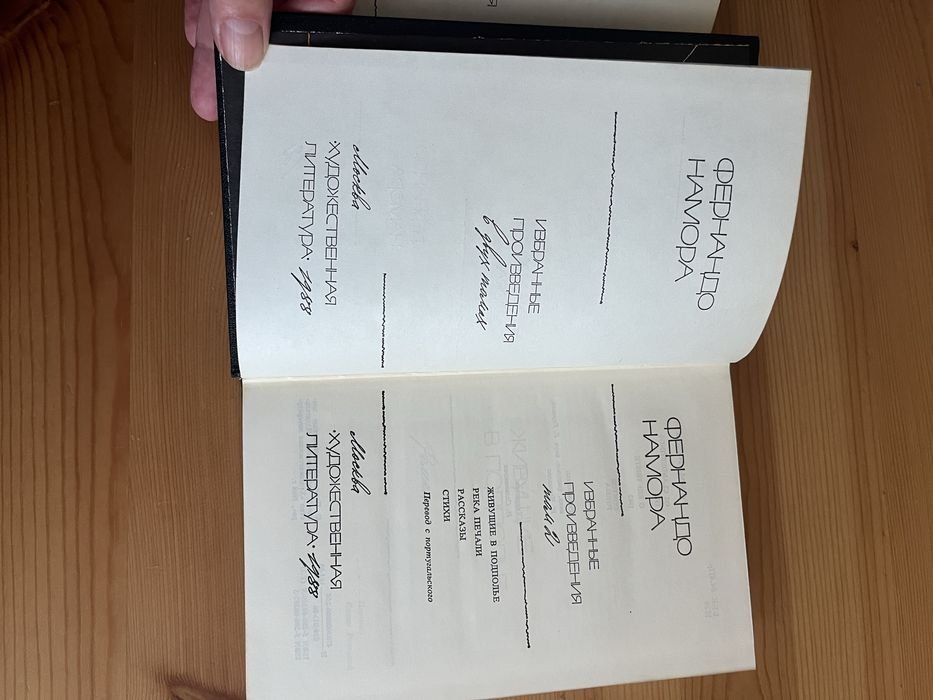 ФЕРНАНДО
НАМОРА
ИЗБРАННЫЕ
ПРОИЗВЕДЕНИЯ
в двух томах
Москва
·ХУДОЖЕСТВЕННАЯ
ЛИТЕРАТУРА· 1988
ФЕРНАНДО
НАМОРА
ИЗБРАННЫЕ
ПРОИЗВЕДЕНИЯ
том 2
ЖИВУЩИЕ В ПОДПОЛЬЕ
РЕКА ПЕЧАЛИ
РАССКАЗЫ
СТИХИ
Перевод с португальского
Москва
·ХУДОЖЕСТВЕННАЯ
ЛИТЕРАТУРА· 1988